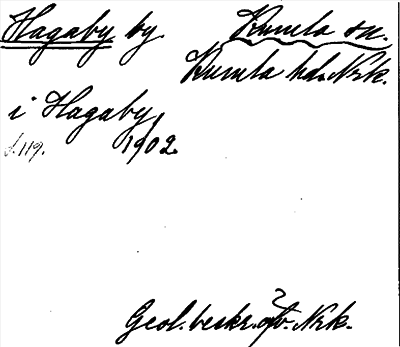 Hagaby by Kumla sn.
Kumla hd. Nrk.
i Hagaby,
s. 119. 1902.
Geol. beskr. öfv. Nrk.